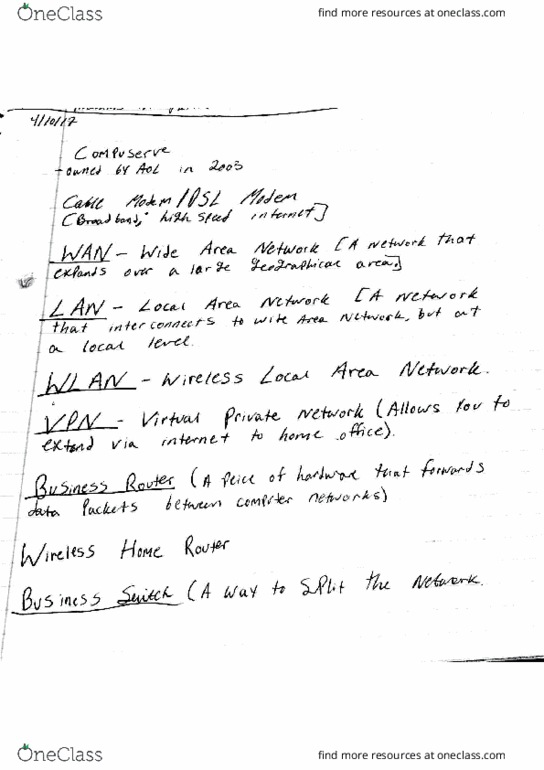 OneClass
find more resources at oneclass.com
4/10/17
Compuserve
- owned by AOL in 2003
Cable Modem/DSL Modem
[Broadband; high speed internet]
WAN - Wide Area Network [A network that
expands over a large geographical area]
LAN - Local Area Network [A network
that interconnects to wide Area Network, but at
a local level.
WLAN - Wireless Local Area Network.
VPN - Virtual Private Network (Allows you to
extend via internet to home office).
Business Router (A peice of hardware that forwards
data packets between computer networks)
Wireless Home Router
Business Switch (A way to split the Network.
OneClass
find more resources at oneclass.com